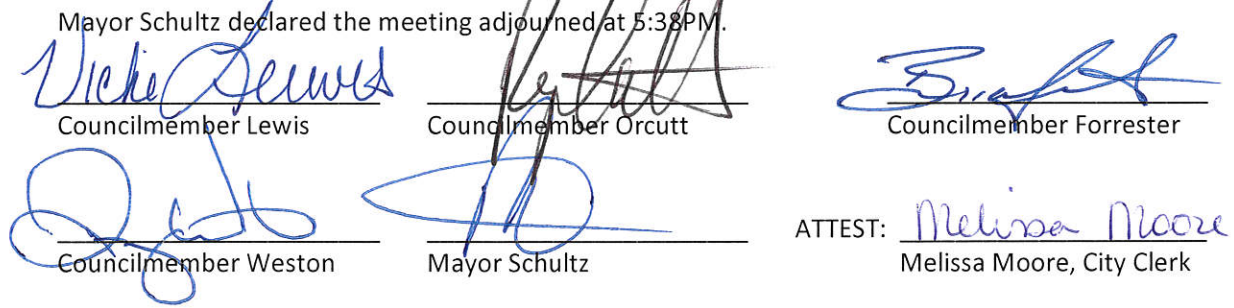 Mayor Schultz declared the meeting adjourned at 5:38PM.
Vickie Lewis
Councilmember Lewis
Councilmember Orcutt
Councilmember Forrester
Councilmember Weston
Mayor Schultz
ATTEST: Melissa Moore
Melissa Moore, City Clerk